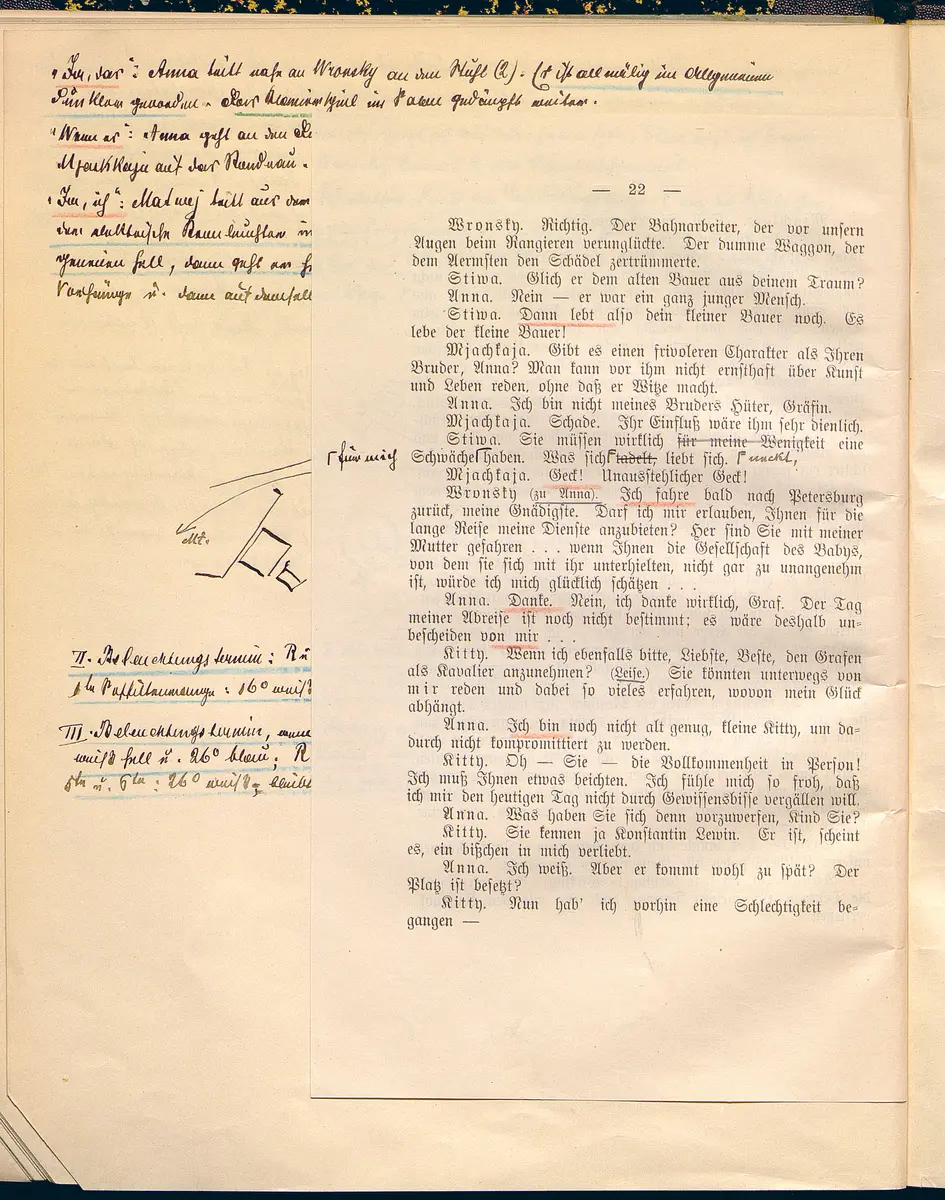 „Im, das“: Anna tritt nahe an Wronsky an den Stuhl (2). (Es ist allmälig im Allgemeinen
dunkler geworden. Das Klavierspiel im Salon gedämpft weiter.
„Wenn er“: Anna geht an den
Mjachkaja auf das Rondeau.
„Im, ich“: Matwej tritt aus dem
den elektrische Kronleuchter
gemeinen hell, dann geht er
Vorhänge u. dann auf demselb
Mj.
II. Beleuchtungstermin: R
III. Beleuchtungstermin,
weiß hell u. 26° blau; R
5te u. 6te: 26° weiß, bleibt
— 22 —
Wronsky. Richtig. Der Bahnarbeiter, der vor unsern
Augen beim Rangieren verunglückte. Der dumme Waggon, der
dem Aermsten den Schädel zertrümmerte.
Stiwa. Glich er dem alten Bauer aus deinem Traum?
Anna. Nein — er war ein ganz junger Mensch.
Stiwa. Dann lebt also dein kleiner Bauer noch. Es
lebe der kleine Bauer!
Mjachkaja. Gibt es einen frivoleren Charakter als Ihren
Bruder, Anna? Man kann vor ihm nicht ernsthaft über Kunst
und Leben reden, ohne daß er Witze macht.
Anna. Ich bin nicht meines Bruders Hüter, Gräfin.
Mjachkaja. Schade. Ihr Einfluß wäre ihm sehr dienlich.
Stiwa. Sie müssen wirklich für meine Wenigkeit eine
für mich
Schwäche haben. Was sich tadelt, liebt sich. neckt,
Mjachkaja. Geck! Unausstehlicher Geck!
Wronsky (zu Anna). Ich fahre bald nach Petersburg
zurück, meine Gnädigste. Darf ich mir erlauben, Ihnen für die
lange Reise meine Dienste anzubieten? Her sind Sie mit meiner
Mutter gefahren . . . wenn Ihnen die Gesellschaft des Babys,
von dem sie sich mit ihr unterhielten, nicht gar zu unangenehm
ist, würde ich mich glücklich schätzen . . .
Anna. Danke. Nein, ich danke wirklich, Graf. Der Tag
meiner Abreise ist noch nicht bestimmt; es wäre deshalb un-
bescheiden von mir . . .
Kitty. Wenn ich ebenfalls bitte, Liebste, Beste, den Grafen
als Kavalier anzunehmen? (Leise.) Sie könnten unterwegs von
mir reden und dabei so vieles erfahren, wovon mein Glück
abhängt.
Anna. Ich bin noch nicht alt genug, kleine Kitty, um da-
durch nicht kompromittiert zu werden.
Kitty. Oh — Sie — die Vollkommenheit in Person!
Ich muß Ihnen etwas beichten. Ich fühle mich so froh, daß
ich mir den heutigen Tag nicht durch Gewissensbisse vergällen will.
Anna. Was haben Sie sich denn vorzuwerfen, Kind Sie?
Kitty. Sie kennen ja Konstantin Lewin. Er ist, scheint
es, ein bißchen in mich verliebt.
Anna. Ich weiß. Aber er kommt wohl zu spät? Der
Platz ist besetzt?
Kitty. Nun hab' ich vorhin eine Schlechtigkeit be-
gangen —